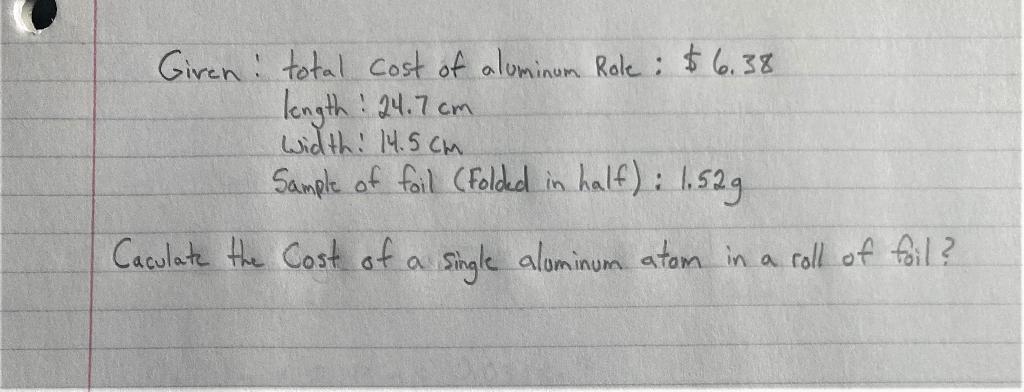 Given: total cost of aluminum Role: $6.38
length: 24.7 cm
width: 14.5 cm
Sample of foil (Folded in half): 1.52g
Caculate the Cost of a single aluminum atom in a roll of foil?